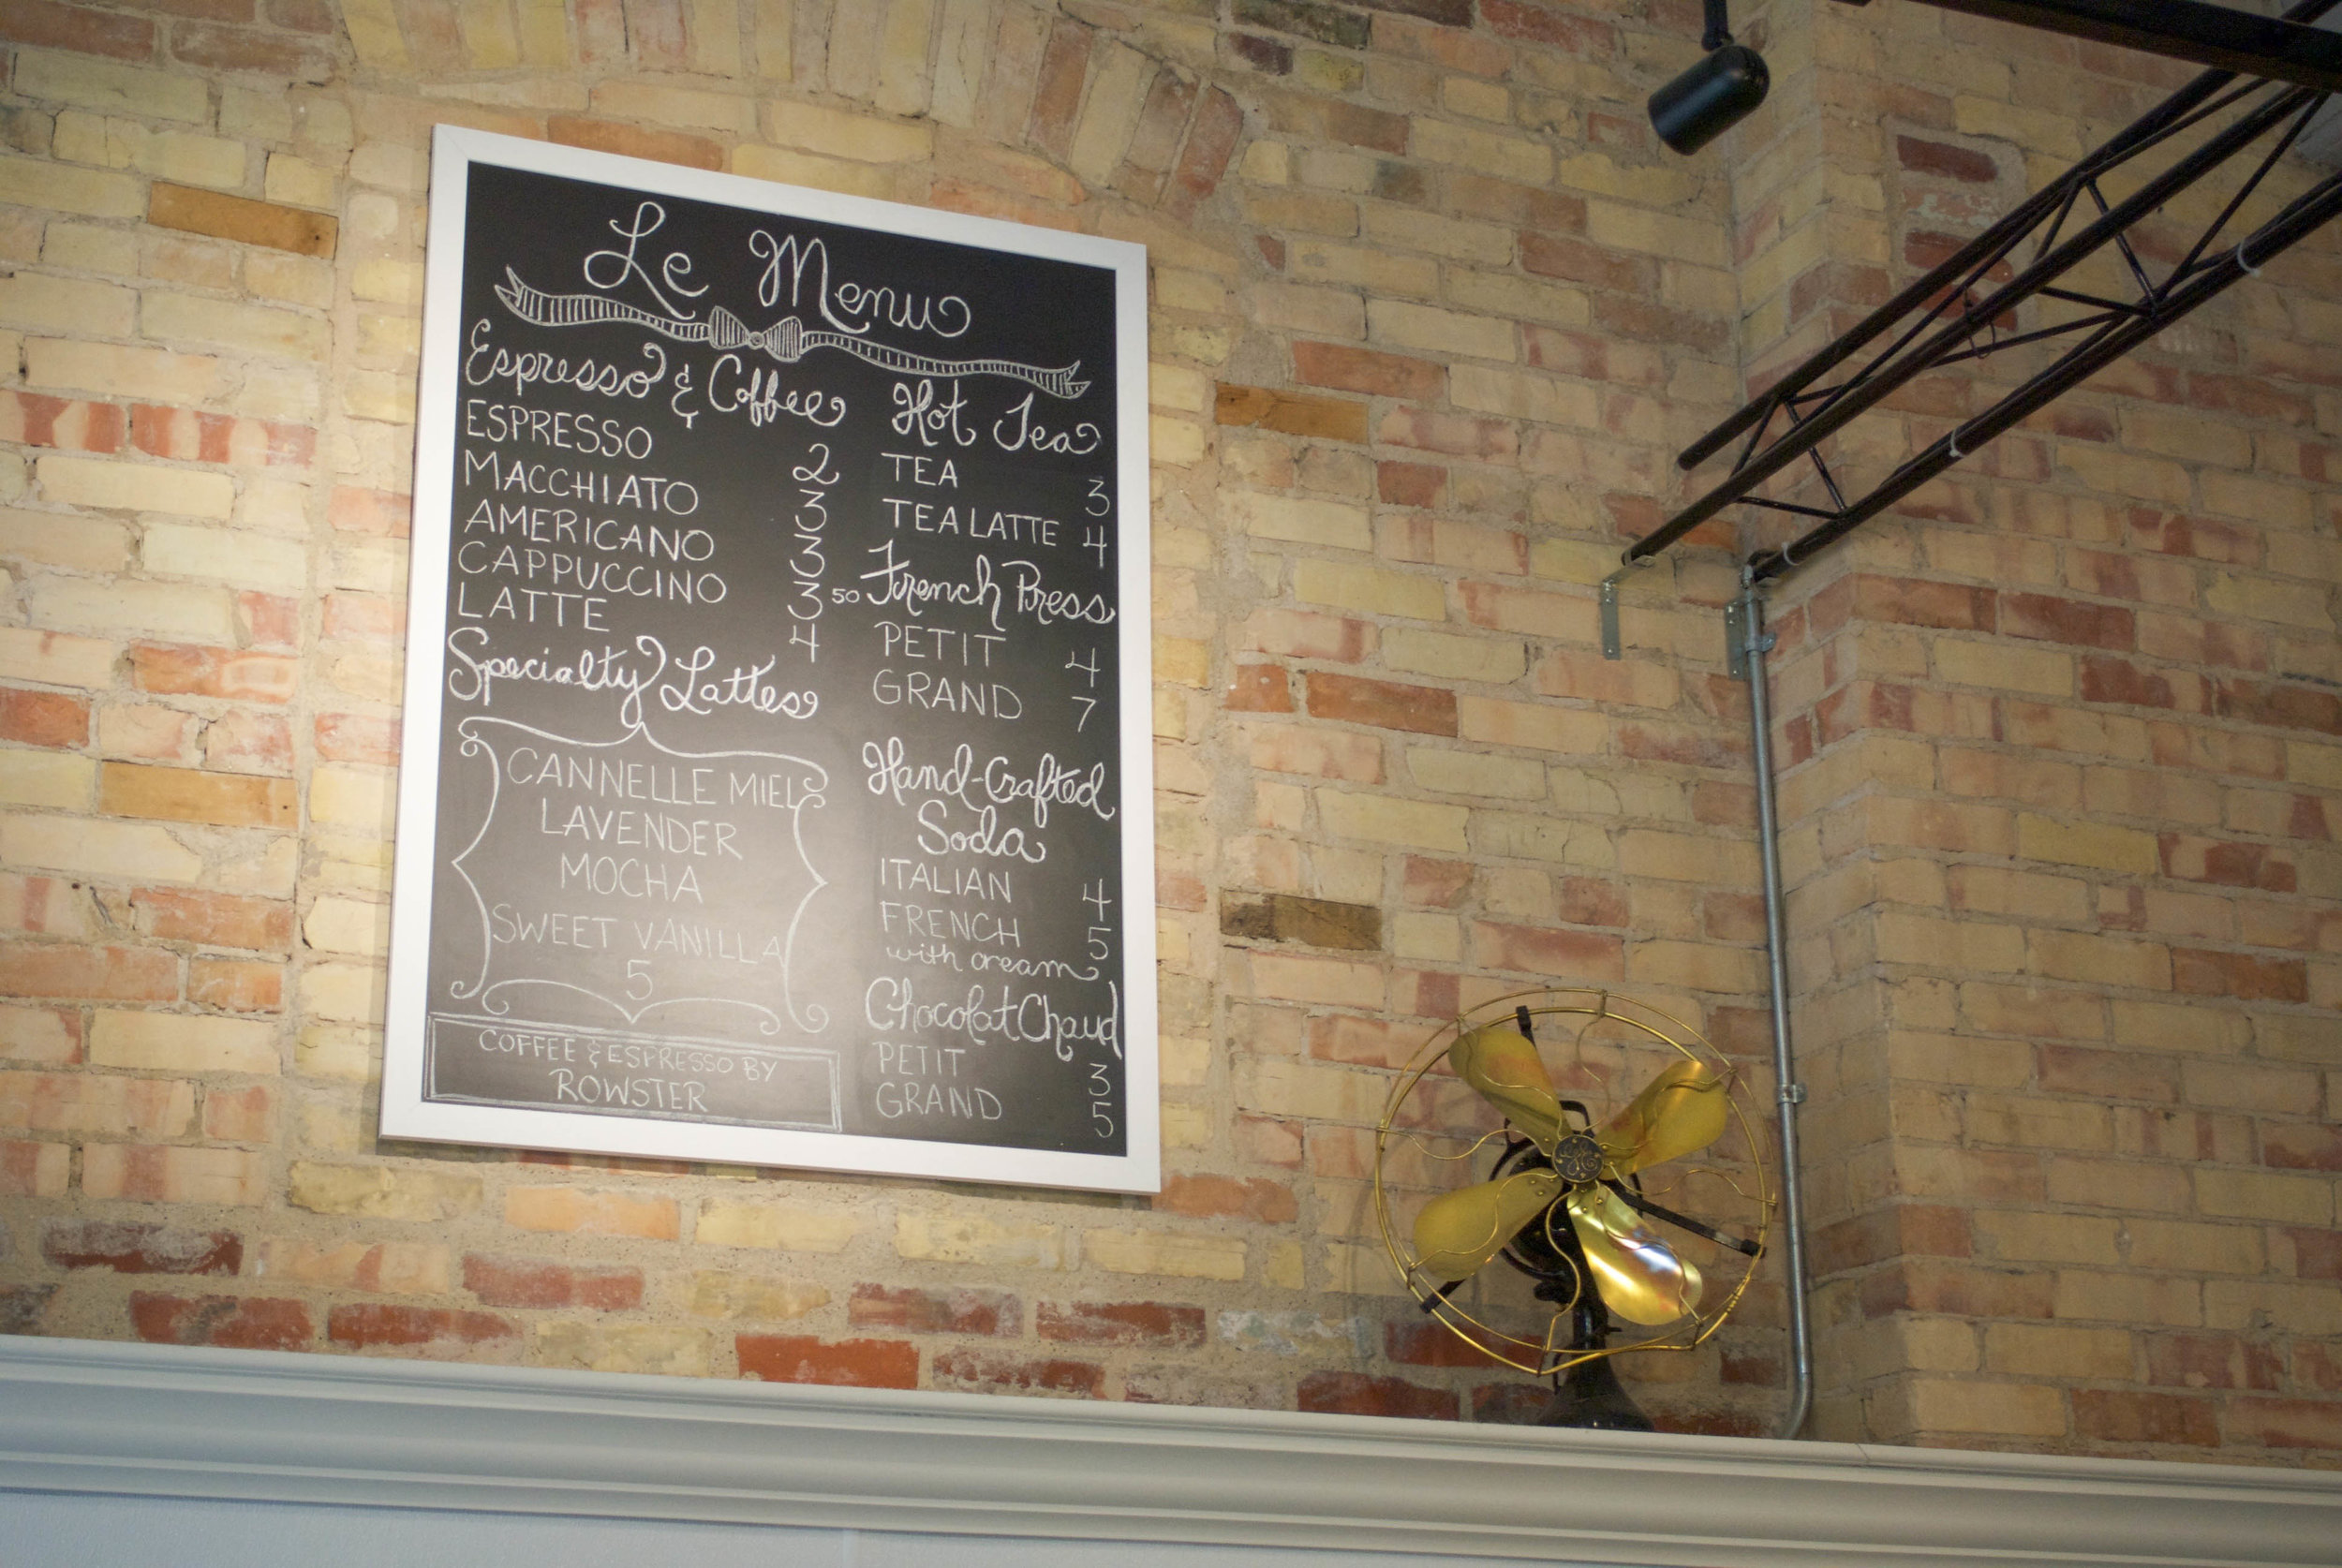 Le Menu
Espresso & Coffee
ESPRESSO 2
MACCHIATO 3
AMERICANO 3
CAPPUCCINO 3 50
LATTE 4
Specialty Lattes
CANNELLE MIEL
LAVENDER
MOCHA
SWEET VANILLA
5
COFFEE & ESPRESSO BY
ROWSTER
Hot Tea
TEA 3
TEA LATTE 4
French Press
PETIT 4
GRAND 7
Hand-Crafted
Soda
ITALIAN 4
FRENCH 5
with cream
Chocolat Chaud
PETIT 3
GRAND 5
GE